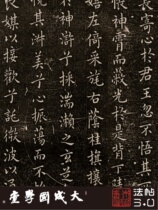 長寄心於君王忽不悟其
神宵而蔽光於是背下
嬉左倚采旄右蔭桂旗攘
於神滸兮採湍瀨之玄芝
悅其淑美兮心振蕩而不
良媒以接歡兮託微波以
大成國學堂
法帖
3.0